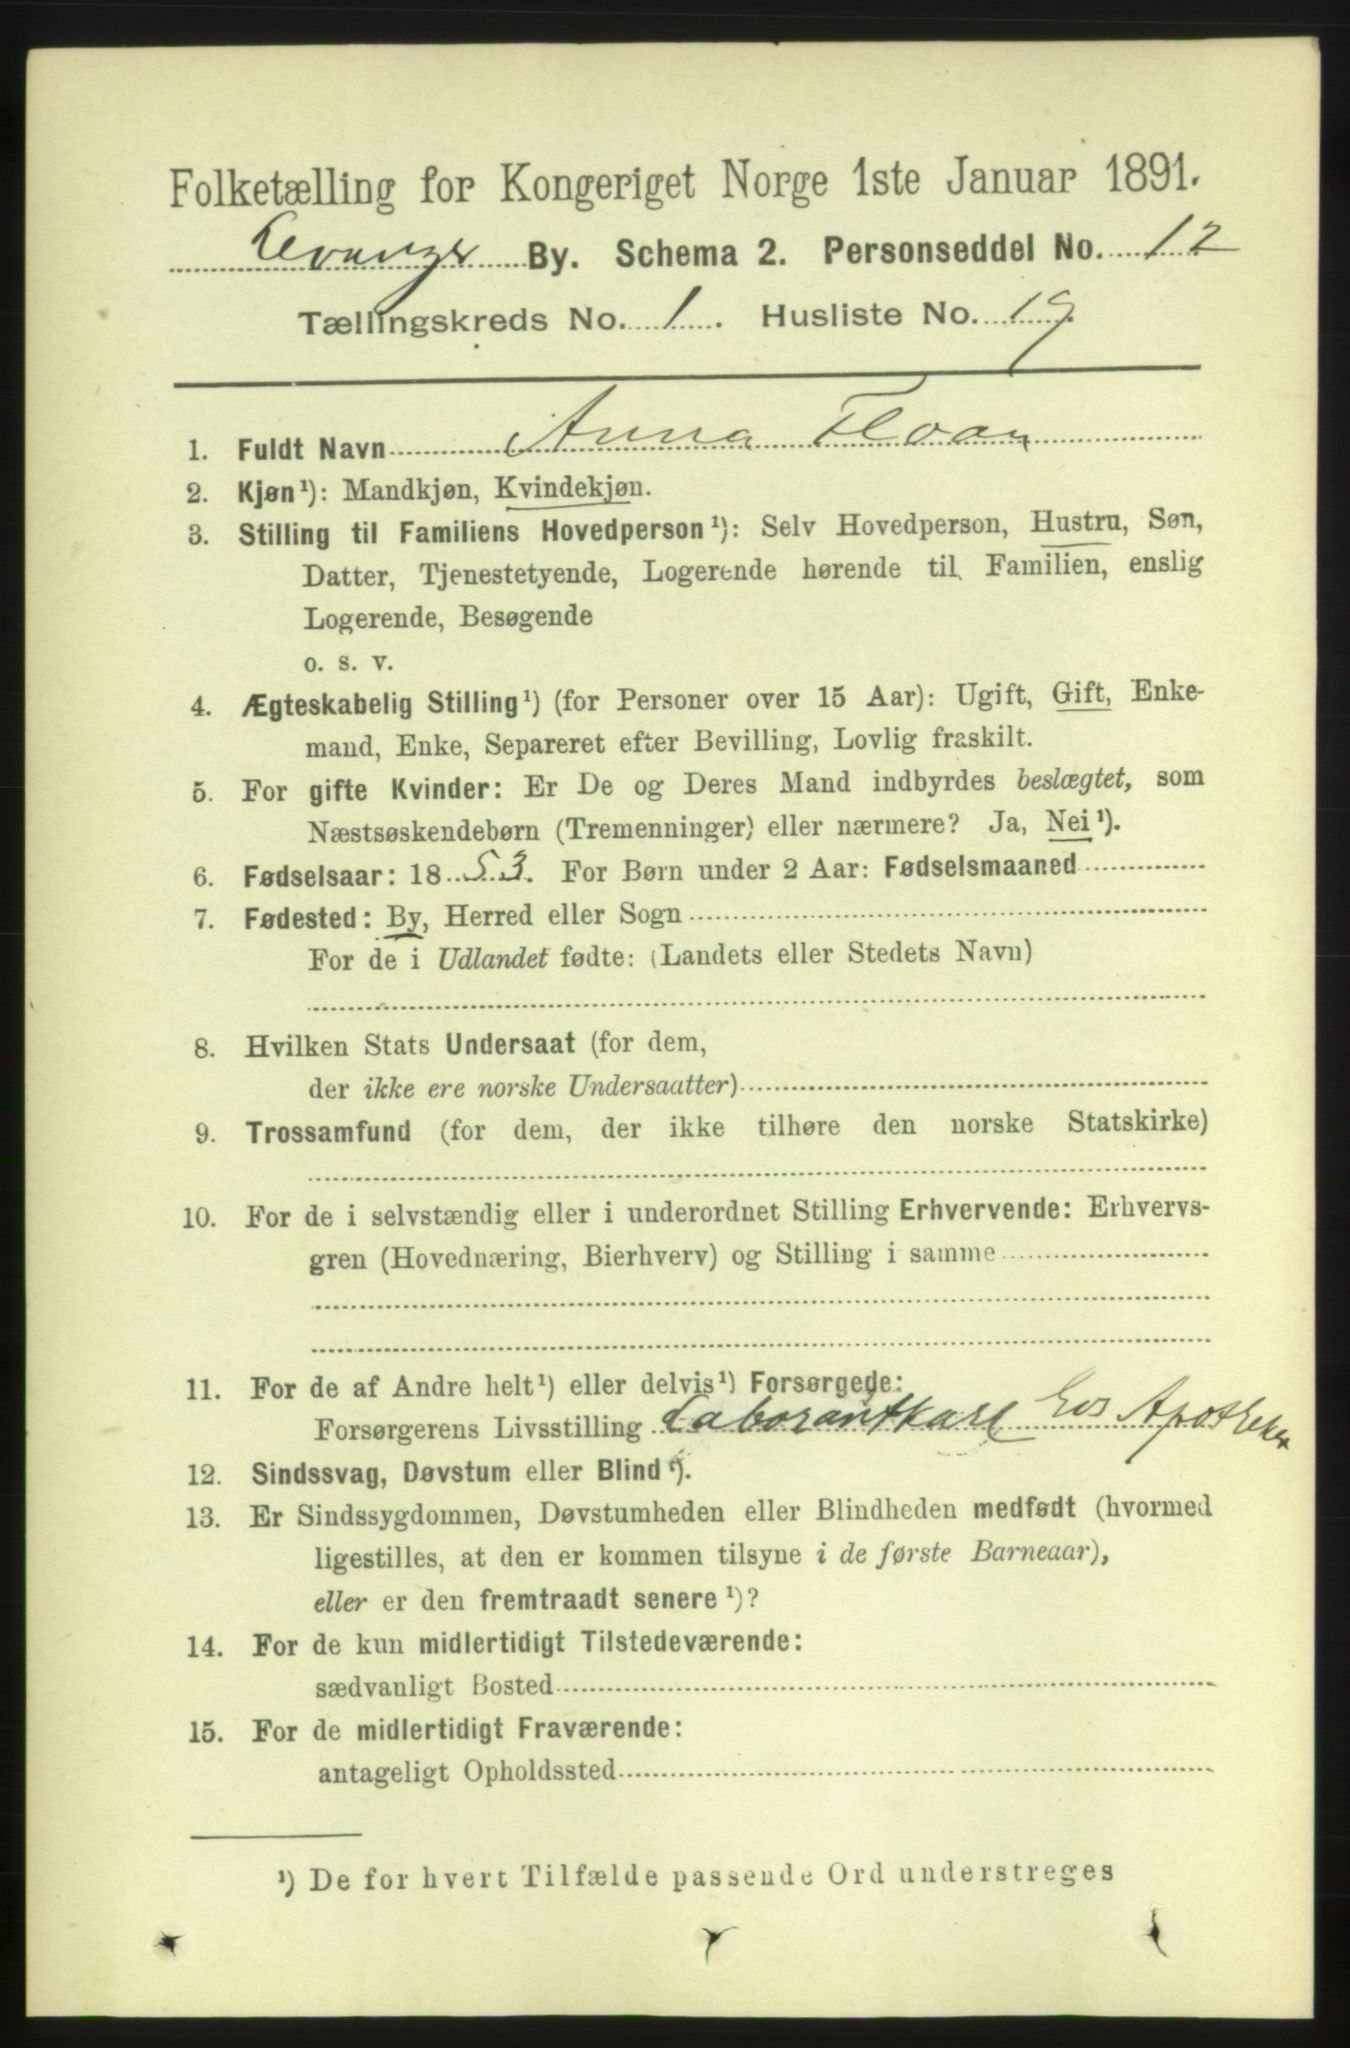 Folketælling for Kongeriget Norge 1ste Januar 1891.
Levanger By. Schema 2. Personseddel No. 12
Tællingskreds No. 1. Husliste No. 19.
1. Fuldt Navn Anna Floan
2. Kjøn¹): Mandkjøn, Kvindekjøn.
3. Stilling til Familiens Hovedperson¹): Selv Hovedperson, Hustru, Søn,
Datter, Tjenestetyende, Logerende hørende til Familien, enslig
Logerende, Besøgende
o. s. v.
4. Ægteskabelig Stilling¹) (for Personer over 15 Aar): Ugift, Gift, Enke-
mand, Enke, Separeret efter Bevilling, Lovlig fraskilt.
5. For gifte Kvinder: Er De og Deres Mand indbyrdes beslægtet, som
Næstsøskendebørn (Tremenninger) eller nærmere? Ja, Nei¹).
6. Fødselsaar: 1853. For Børn under 2 Aar: Fødselsmaaned
7. Fødested: By, Herred eller Sogn
For de i Udlandet fødte: (Landets eller Stedets Navn)
8. Hvilken Stats Undersaat (for dem,
der ikke ere norske Undersaatter)
9. Trossamfund (for dem, der ikke tilhøre den norske Statskirke)
10. For de i selvstændig eller i underordnet Stilling Erhvervende: Erhvervs-
gren (Hovednæring, Bierhverv) og Stilling i samme
11. For de af Andre helt¹) eller delvis¹) Forsørgede:
Forsørgerens Livsstilling Laborantkarl hos Apotheker
12. Sindssvag, Døvstum eller Blind¹).
13. Er Sindssygdommen, Døvstumheden eller Blindheden medfødt (hvormed
ligestilles, at den er kommen tilsyne i de første Barneaar),
eller er den fremtraadt senere¹)?
14. For de kun midlertidigt Tilstedeværende:
sædvanligt Bosted
15. For de midlertidigt Fraværende:
antageligt Opholdssted
¹) De for hvert Tilfælde passende Ord understreges